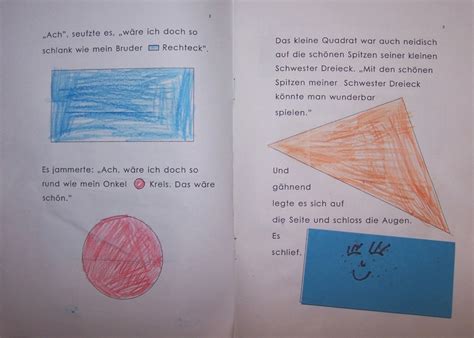 „Ach", seufzte es, „wäre ich doch so
schlank wie mein Bruder Rechteck".
Es jammerte: „Ach, wäre ich doch so
rund wie mein Onkel Kreis. Das wäre
schön."
Das kleine Quadrat war auch neidisch
auf die schönen Spitzen seiner kleinen
Schwester Dreieck. „Mit den schönen
Spitzen meiner Schwester Dreieck
könnte man wunderbar
spielen."
Und
gähnend
legte es sich auf
die Seite und schloss die Augen.
Es
schlief.